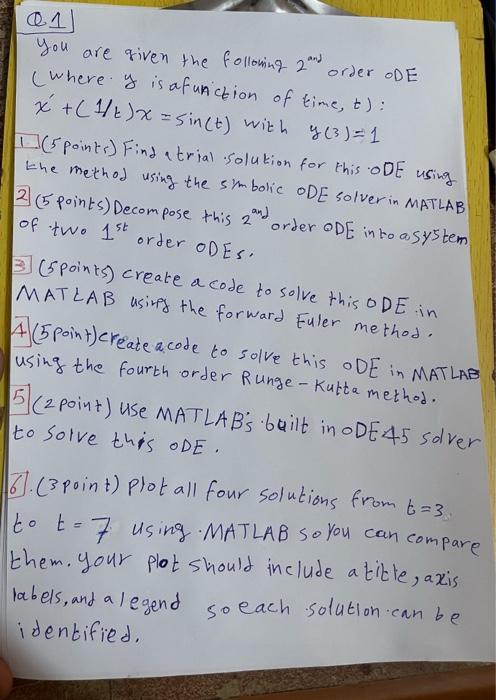 Q.1
You are given the following 2and order ODE
(where y is a function of time, t):
x' + (1/t)x = sin(t) with y(3)=1
1 (5 points) Find a trial solution for this ODE using
the method using the symbolic ODE solver in MATLAB
2 (5 points) Decompose this 2and order ODE into a system
of two 1st order ODEs.
3 (5 points) create a code to solve this ODE in
MATLAB using the forward Euler method.
4 (5 point) create a code to solve this ODE in MATLAB
using the fourth order Runge-Kutta method.
5 (2 point) use MATLAB's built in ODE45 solver
to solve this ODE.
6. (3 point) plot all four solutions from t=3
to t = 7 using MATLAB so you can compare
them. your plot should include a title, axis
labels, and a legend so each solution can be
identified.